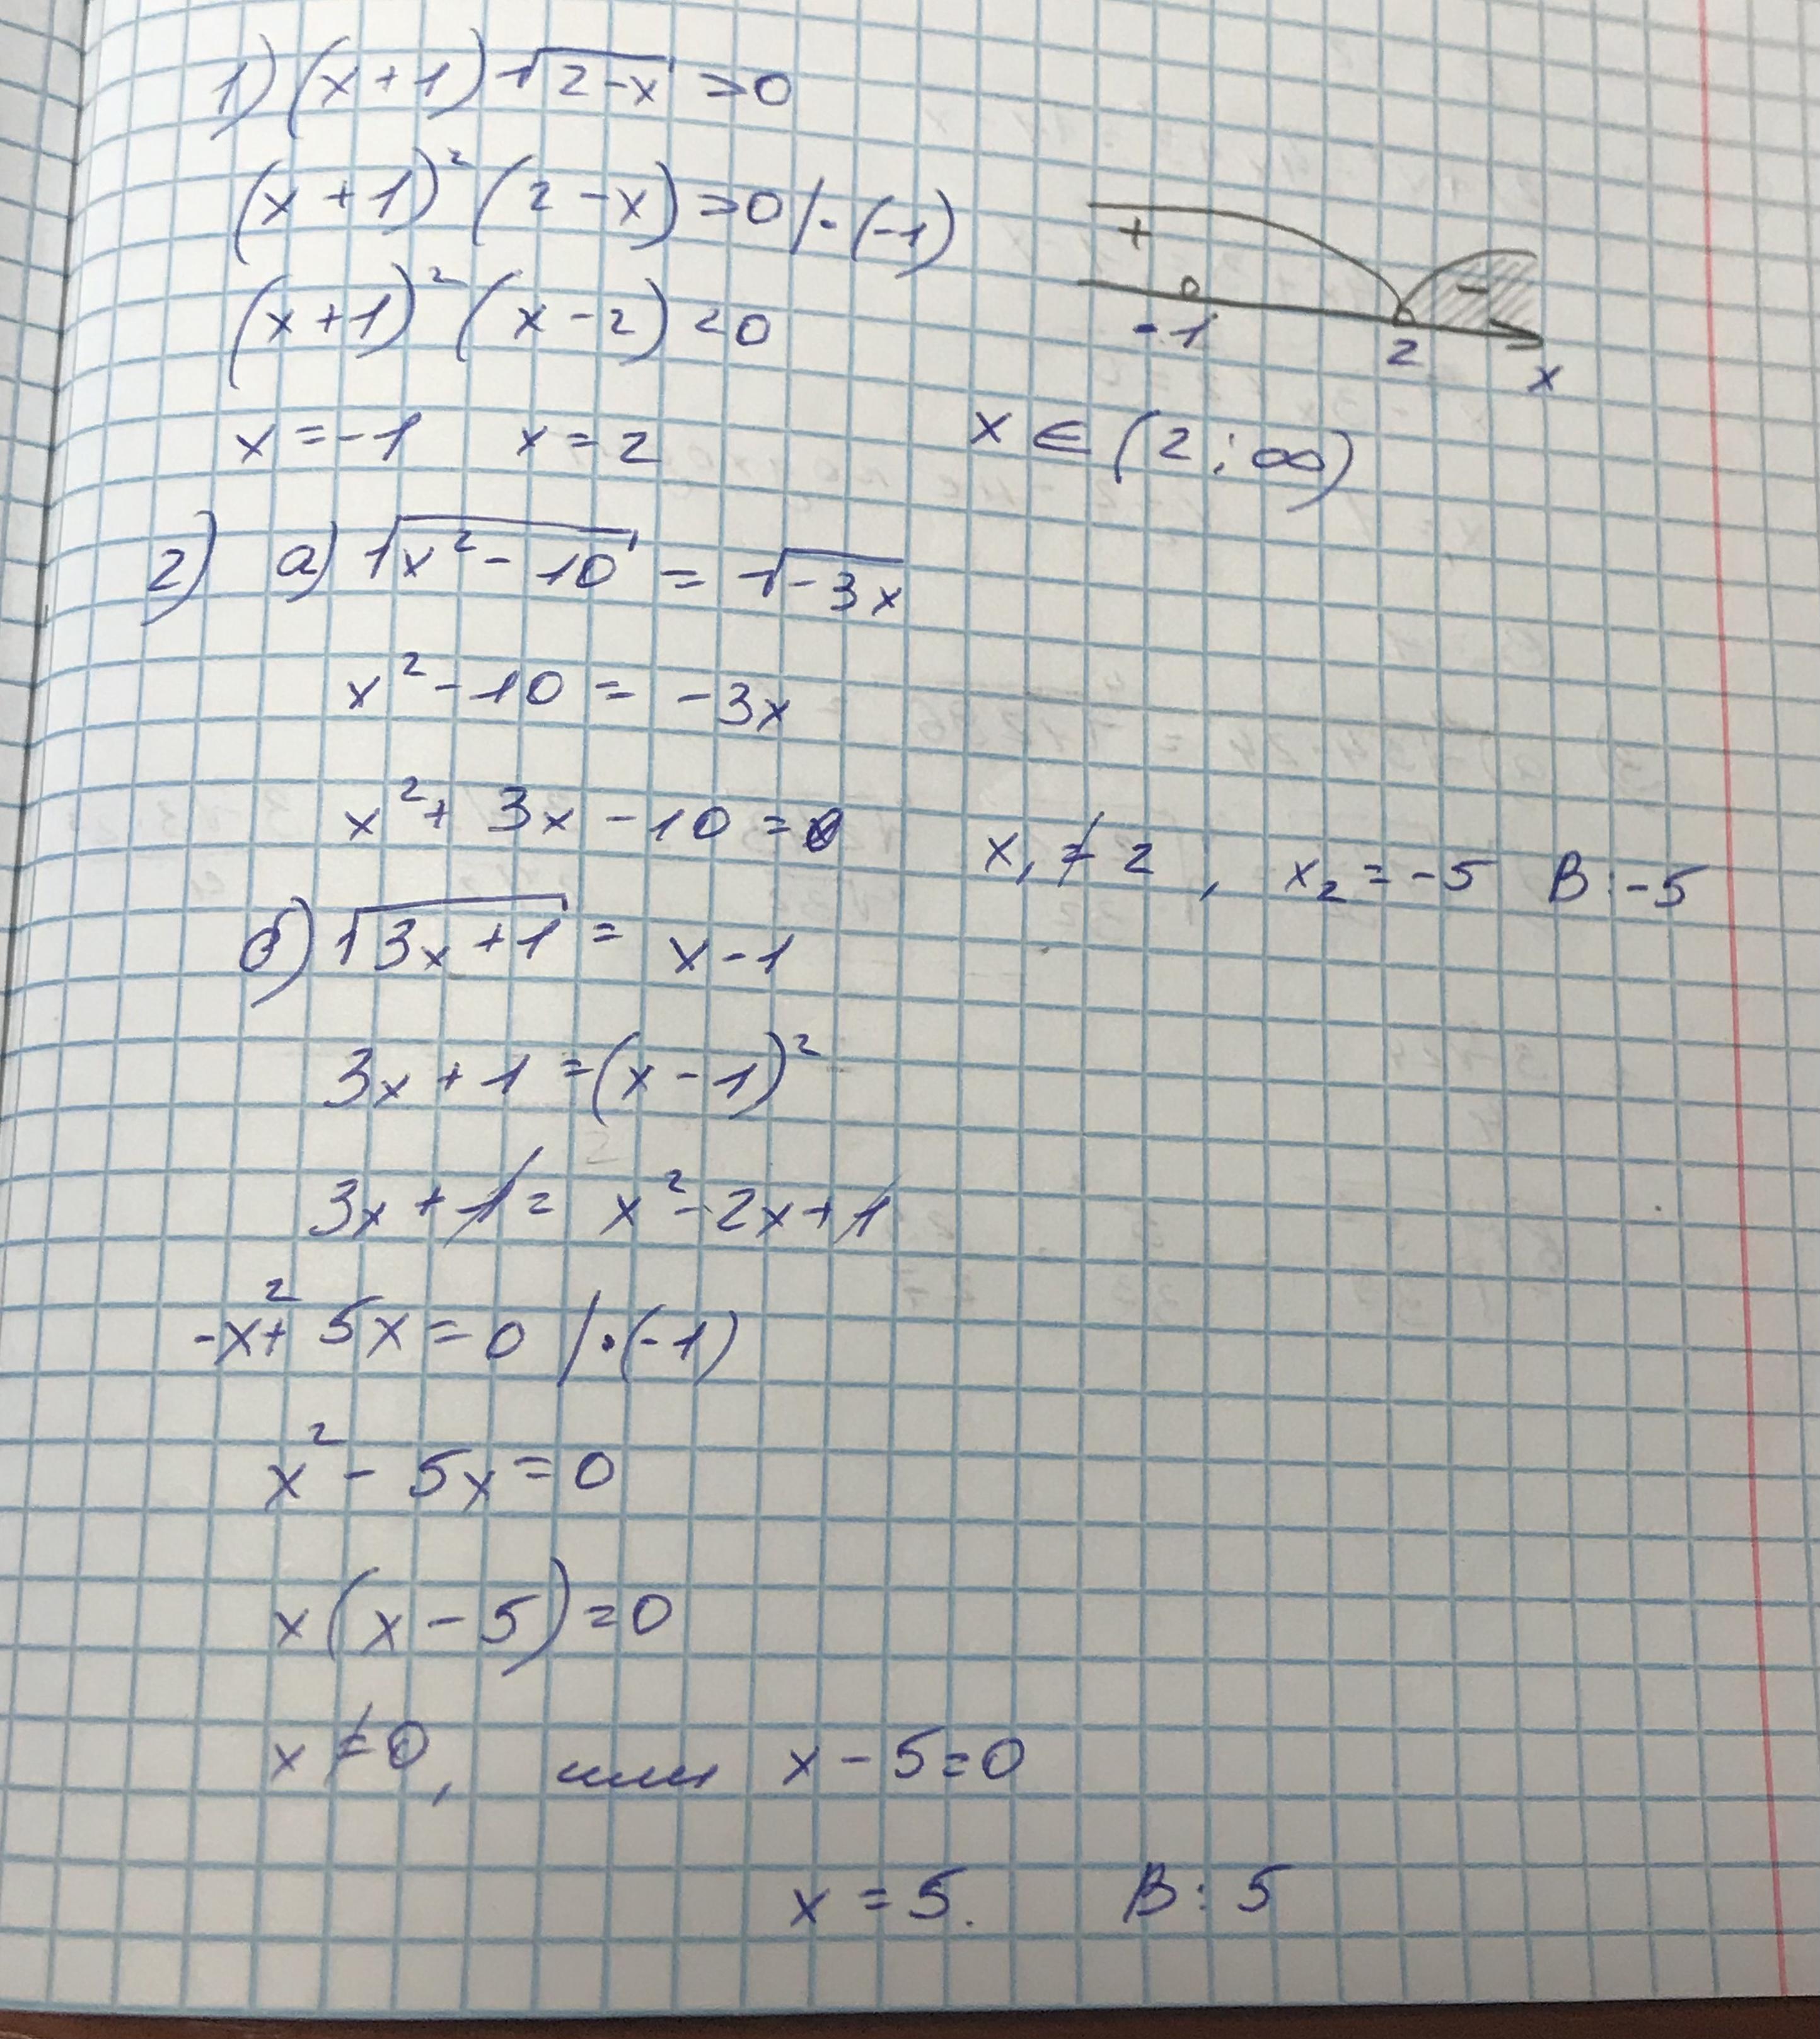 1) (x+1)√(2-x) >0
(x+1)² (2-x) >0 /·(-1)
(x+1)² (x-2) <0
+ -
-1 2 x
x=-1 x=2 x ∈ (2; ∞)
2) a) √(x²-10) = √(-3x)
x²-10 = -3x
x²+3x-10=0 x₁≠2, x₂=-5 В:-5
б) √(3x+1) = x-1
3x+1=(x-1)²
3x+1= x²-2x+1
-x²+5x=0 /·(-1)
x²-5x=0
x(x-5)=0
x≠0, или x-5=0
x=5. В: 5